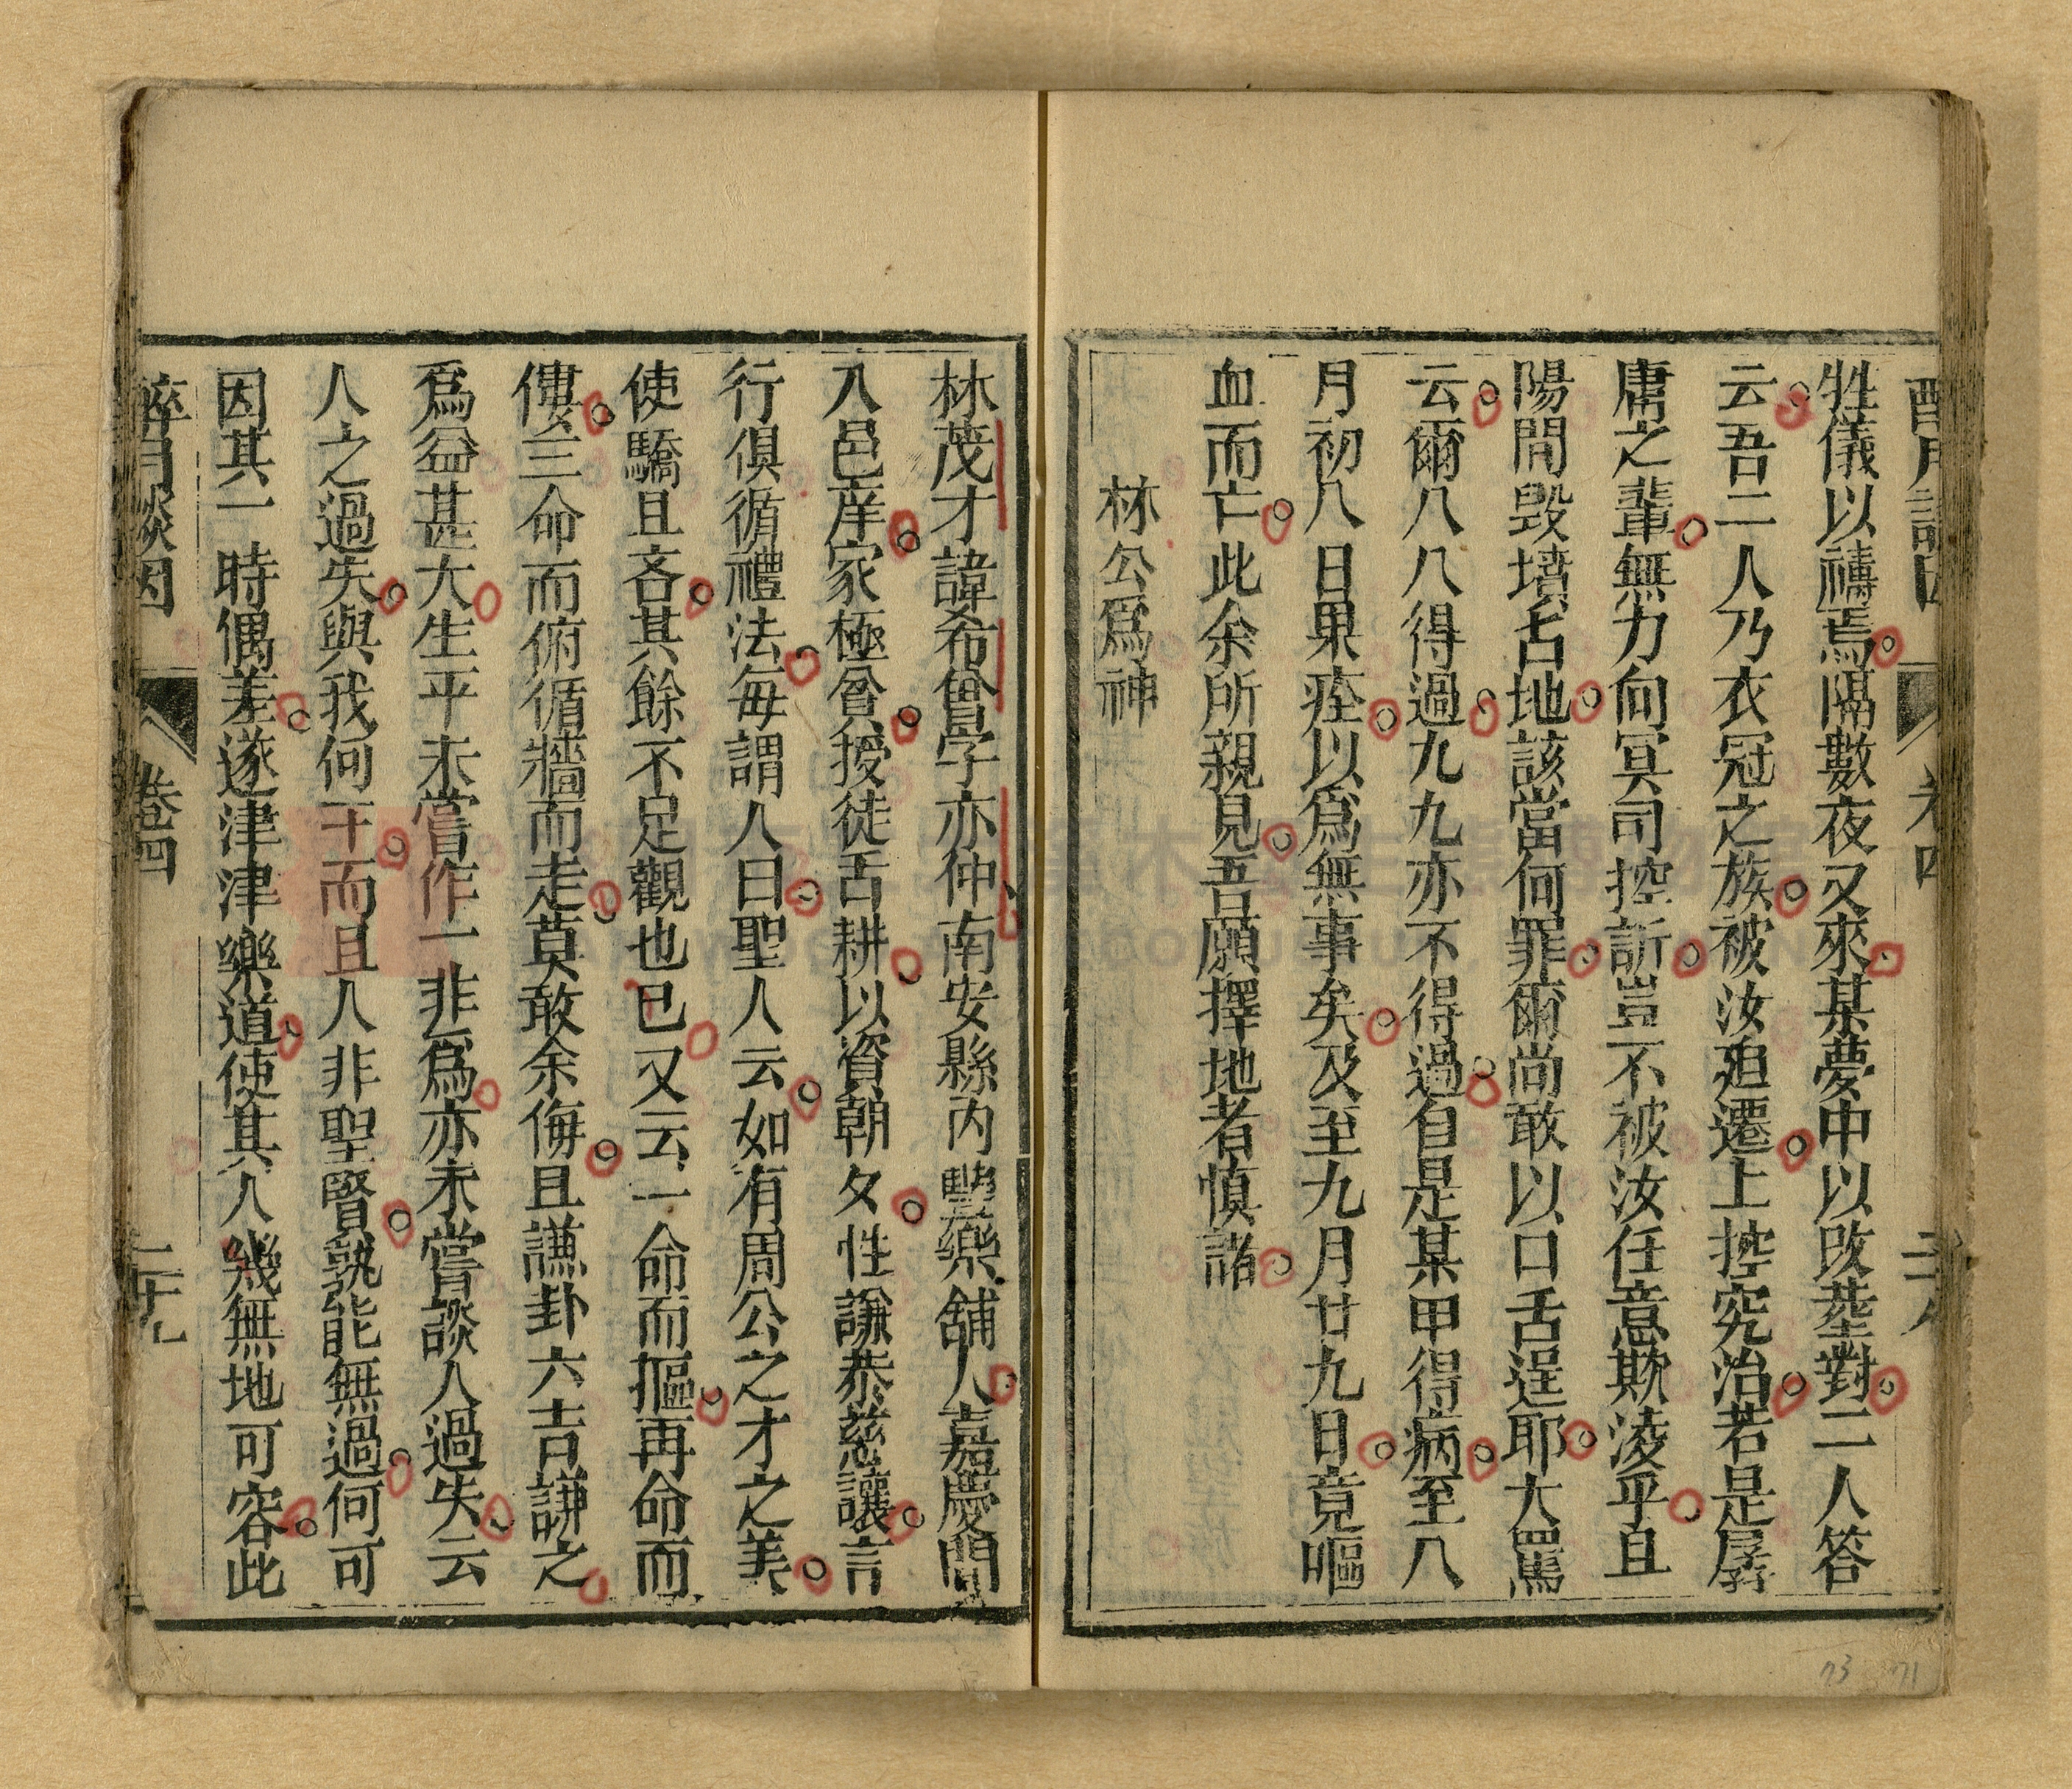 牲儀以禱焉隔數夜又來某夢中以改塟對二人答
云吾二人乃衣冠之族被汝廹遷上控究治若是孱
庸之輩無力向冥司控訢豈不被汝任意欺凌乎且
陽間毀墳占地該當何罪爾尚敢以口舌逞耶大罵
云爾八八得過九九亦不得過自是某甲得病至八
月初八日果痊以爲無事矣及至九月廿九日竟嘔
血而亡此余所親見吾願擇地者慎諸
林公爲神
林茂才諱希曾字亦仲南安縣内豐樂舖人嘉慶間
入邑庠家極貧授徒舌耕以資朝夕性謙恭慈讓言
行俱循禮法每謂人曰聖人云如有周公之才之美
使驕且吝其餘不足觀也已又云一命而摳再命而
僂三命而俯循牆而走莫敢余侮且謙卦六吉謙之
爲益甚大生平未嘗作一非爲亦未嘗談人過失云
人之過失與我何干而且人非聖賢孰能無過何可
因其一時偶差遂津津樂道使其人幾無地可容此
醉月談因 卷四 二十九